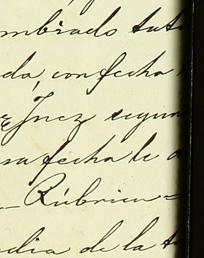 mbrado tuto
da, con fecha
e Inez segun
sa fecha le a
— Rúbrica =
edia de la t